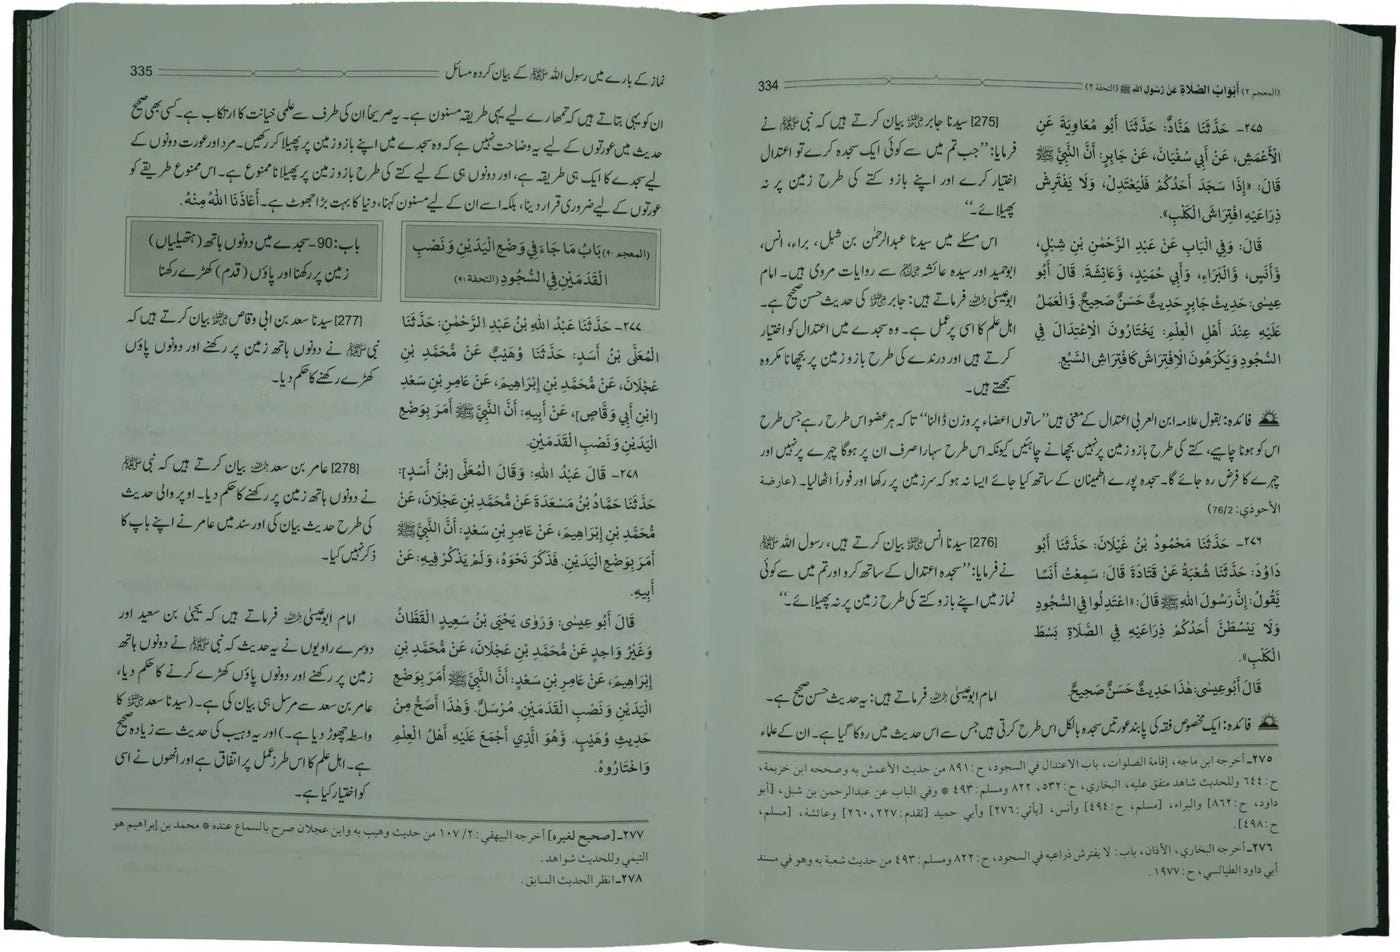 (المعجم ٢) أَبْوَابُ الصَّلَاةِ عَنْ رَسُولِ اللهِ ﷺ (التحفة ٢)
334
٢٧٥- حَدَّثَنَا هَنَّادٌ: حَدَّثَنَا أَبُو مُعَاوِيَةَ عَنِ
الْأَعْمَشِ، عَنْ أَبِي سُفْيَانَ، عَنْ جَابِرٍ: أَنَّ النَّبِيَّ ﷺ
قَالَ: «إِذَا سَجَدَ أَحَدُكُمْ فَلْيَعْتَدِلْ، وَلَا يَفْتَرِشْ
ذِرَاعَيْهِ افْتِرَاشَ الْكَلْبِ».
قَالَ: وَفِي الْبَابِ عَنْ عَبْدِ الرَّحْمٰنِ بْنِ شِبْلٍ،
وَأَنَسٍ، وَالْبَرَاءِ، وَأَبِي حُمَيْدٍ، وَعَائِشَةَ. قَالَ أَبُو
عِيسٰى: حَدِيثُ جَابِرٍ حَدِيثٌ حَسَنٌ صَحِيحٌ. وَالْعَمَلُ
عَلَيْهِ عِنْدَ أَهْلِ الْعِلْمِ: يَخْتَارُونَ الِاعْتِدَالَ فِي
السُّجُودِ وَيَكْرَهُونَ الِافْتِرَاشَ كَافْتِرَاشِ السَّبُعِ.
[275] سیدنا جابر ؓ بیان کرتے ہیں کہ نبی ﷺ نے
فرمایا: ’’جب تم میں سے کوئی ایک سجدہ کرے تو اعتدال
اختیار کرے اور اپنے بازو کتے کی طرح زمین پر نہ
پھیلائے۔‘‘
اس مسئلے میں سیدنا عبدالرحمٰن بن شبل، براء، انس،
ابوحمید اور سیدہ عائشہ ؓ سے روایات مروی ہیں۔ امام
ابوعیسٰی ؒ فرماتے ہیں: جابر ؓ کی حدیث حسن صحیح ہے۔
اہل علم کا اسی پر عمل ہے۔ وہ سجدے میں اعتدال کو اختیار
کرتے ہیں اور درندے کی طرح بازو زمین پر بچھانا مکروہ
سمجھتے ہیں۔
فائدہ: بقول علامہ ابن العربی اعتدال کے معنی ہیں ’’ساتوں اعضاء پر وزن ڈالنا‘‘ تاکہ ہر عضو اس طرح رہے جس طرح
اس کو ہونا چاہیے، کتے کی طرح بازو زمین پر نہیں بچھانے چاہئیں کیونکہ اس طرح سہارا صرف ان پر ہوگا چہرے پر نہیں اور
چہرے کا فرض رہ جائے گا۔ سجدہ پورے اطمینان کے ساتھ کیا جائے ایسا نہ ہو کہ سر زمین پر رکھا اور فوراً اٹھا لیا۔ (عارضة
الأحوذي: 76/2)
٢٧٦- حَدَّثَنَا مَحْمُودُ بْنُ غَيْلَانَ: حَدَّثَنَا أَبُو
دَاوُدَ: حَدَّثَنَا شُعْبَةُ عَنْ قَتَادَةَ قَالَ: سَمِعْتُ أَنَسًا
يَقُولُ: إِنَّ رَسُولَ اللهِ ﷺ قَالَ: «اعْتَدِلُوا فِي السُّجُودِ
وَلَا يَبْسُطَنَّ أَحَدُكُمْ ذِرَاعَيْهِ فِي الصَّلَاةِ بَسْطَ
الْكَلْبِ».
قَالَ أَبُو عِيسٰى: هٰذَا حَدِيثٌ حَسَنٌ صَحِيحٌ.
[276] سیدنا انس ؓ بیان کرتے ہیں، رسول اللہ ﷺ
نے فرمایا: ’’سجدہ اعتدال کے ساتھ کرو اور تم میں سے کوئی
نماز میں اپنے بازو کتے کی طرح زمین پر نہ پھیلائے۔‘‘
امام ابوعیسٰی ؒ فرماتے ہیں: یہ حدیث حسن صحیح ہے۔
فائدہ: ایک مخصوص فقہ کی پابند عورتیں سجدہ بالکل اس طرح کرتی ہیں جس سے اس حدیث میں روکا گیا ہے۔ ان کے علماء
٢٧٥- أخرجه ابن ماجه، إقامة الصلوات، باب الاعتدال في السجود، ح: ٨٩١ من حديث الأعمش به وصححه ابن خزيمة،
ح: ٦٤٤ وللحديث شاهد متفق عليه، البخاري، ح: ٥٣٢، ٨٢٢ ومسلم: ٤٩٣ * وفي الباب عن عبدالرحمن بن شبل، [أبو
داود، ح: ٨٦٢] والبراء، [مسلم، ح: ٤٩٤] وأنس، [يأتي: ٢٧٦] وأبي حميد [تقدم: ٢٢٧، ٢٦٠] وعائشة، [مسلم،
ح: ٤٩٨].
٢٧٦- أخرجه البخاري، الأذان، باب: لا يفترش ذراعيه في السجود، ح: ٨٢٢ ومسلم: ٤٩٣ من حديث شعبة به وهو في مسند
أبي داود الطيالسي، ح: ١٩٧٧.
نماز کے بارے میں رسول اللہ ﷺ کے بیان کردہ مسائل
335
ان کو یہی بتاتے ہیں کہ تمھارے لیے یہی طریقہ مسنون ہے۔ یہ صریحاً ان کی طرف سے علمی خیانت کا ارتکاب ہے۔ کسی بھی صحیح
حدیث میں عورتوں کے لیے یہ وضاحت نہیں ہے کہ وہ سجدے میں اپنے بازو زمین پر پھیلا کر رکھیں۔ مرد اور عورت دونوں کے
لیے سجدے کا ایک ہی طریقہ ہے، اور دونوں ہی کے لیے کتے کی طرح بازو زمین پر پھیلانا ممنوع ہے۔ اس ممنوع طریقے کو
عورتوں کے لیے ضروری قرار دینا، بلکہ اسے ان کے لیے مسنون کہنا، دنیا کا بہت بڑا جھوٹ ہے۔ أَعَاذَنَا اللهُ مِنْهُ.
(المعجم ٩٠) بَابُ مَا جَاءَ فِي وَضْعِ الْيَدَيْنِ وَنَصْبِ
الْقَدَمَيْنِ فِي السُّجُودِ (التحفة ٩١)
باب: 90- سجدے میں دونوں ہاتھ (ہتھیلیاں)
زمین پر رکھنا اور پاؤں (قدم) کھڑے رکھنا
٢٧٧- حَدَّثَنَا عَبْدُ اللهِ بْنُ عَبْدِ الرَّحْمٰنِ: حَدَّثَنَا
الْمُعَلَّى بْنُ أَسَدٍ: حَدَّثَنَا وُهَيْبٌ عَنْ مُحَمَّدِ بْنِ
عَجْلَانَ، عَنْ مُحَمَّدِ بْنِ إِبْرَاهِيمَ، عَنْ عَامِرِ بْنِ سَعْدِ
[ابْنِ أَبِي وَقَّاصٍ]، عَنْ أَبِيهِ: أَنَّ النَّبِيَّ ﷺ أَمَرَ بِوَضْعِ
الْيَدَيْنِ وَنَصْبِ الْقَدَمَيْنِ.
[277] سیدنا سعد بن ابی وقاص ؓ بیان کرتے ہیں کہ
نبی ﷺ نے دونوں ہاتھ زمین پر رکھنے اور دونوں پاؤں
کھڑے رکھنے کا حکم دیا۔
٢٧٨- قَالَ عَبْدُ اللهِ: وَقَالَ الْمُعَلَّى [بْنُ أَسَدٍ]:
حَدَّثَنَا حَمَّادُ بْنُ مَسْعَدَةَ عَنْ مُحَمَّدِ بْنِ عَجْلَانَ، عَنْ
مُّحَمَّدِ بْنِ إِبْرَاهِيمَ، عَنْ عَامِرِ بْنِ سَعْدٍ: أَنَّ النَّبِيَّ ﷺ
أَمَرَ بِوَضْعِ الْيَدَيْنِ. فَذَكَرَ نَحْوَهُ، وَلَمْ يَذْكُرْ فِيهِ: عَنْ
أَبِيهِ.
[278] عامر بن سعد ؒ بیان کرتے ہیں کہ نبی ﷺ
نے دونوں ہاتھ زمین پر رکھنے کا حکم دیا۔ اوپر والی حدیث
کی طرح حدیث بیان کی اور سند میں عامر نے اپنے باپ کا
ذکر نہیں کیا۔
قَالَ أَبُو عِيسٰى: وَرَوٰى يَحْيَى بْنُ سَعِيدٍ الْقَطَّانُ
وَغَيْرُ وَاحِدٍ عَنْ مُحَمَّدِ بْنِ عَجْلَانَ، عَنْ مُحَمَّدِ بْنِ
إِبْرَاهِيمَ، عَنْ عَامِرِ بْنِ سَعْدٍ: أَنَّ النَّبِيَّ ﷺ أَمَرَ بِوَضْعِ
الْيَدَيْنِ وَنَصْبِ الْقَدَمَيْنِ. مُرْسَلٌ. وَهٰذَا أَصَحُّ مِنْ
حَدِيثِ وُهَيْبٍ. وَهُوَ الَّذِي أَجْمَعَ عَلَيْهِ أَهْلُ الْعِلْمِ
وَاخْتَارُوهُ.
امام ابوعیسٰی ؒ فرماتے ہیں کہ یحیٰی بن سعید اور
دوسرے راویوں نے یہ حدیث کہ نبی ﷺ نے دونوں ہاتھ
زمین پر رکھنے اور دونوں پاؤں کھڑے کرنے کا حکم دیا،
عامر بن سعد سے مرسل ہی بیان کی ہے۔ (سیدنا سعد ؓ کا
واسطہ چھوڑ دیا ہے۔) اور یہ وہیب کی حدیث سے زیادہ صحیح
ہے۔ اہل علم کا اس طرز عمل پر اتفاق ہے اور انھوں نے اسی
کو اختیار کیا ہے۔
٢٧٧- [صحيح لغيره] أخرجه البيهقي: ٢/ ١٠٧ من حديث وهيب به وابن عجلان صرح بالسماع عنده * محمد بن إبراهيم هو
التيمي وللحديث شواهد.
٢٧٨- انظر الحديث السابق.